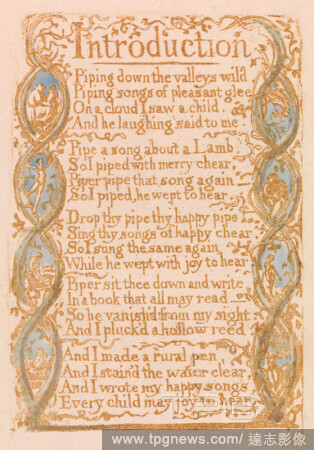 Introduction
Piping down the valleys wild
Piping songs of pleasant glee
On a cloud I saw a child.
And he laughing said to me.
Pipe a song about a Lamb;
So I piped with merry chear,
Piper pipe that song again—
So I piped, he wept to hear.
Drop thy pipe thy happy pipe
Sing thy songs of happy chear
So I sung the same again
While he wept with joy to hear
Piper sit thee down and write
In a book that all may read—
So he vanish'd from my sight.
And I pluck'd a hollow reed.
And I made a rural pen,
And I stain'd the water clear,
And I wrote my happy songs
Every child may joy to hear
www.tpgnews.com/ 達志影像